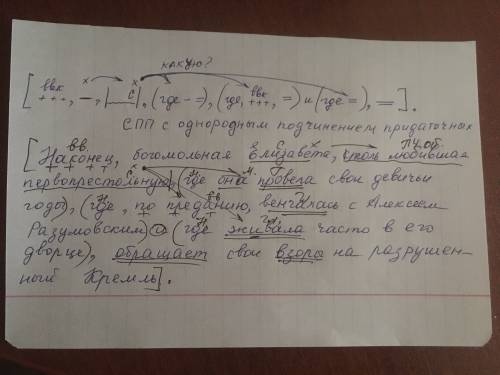 какую?
[ ввк +++, –, |___|, (где – =), (где, ввк +++, =) и (где =), = ].
СПП с однородным подчинением придаточных
[Наконец, богомольная Елизавета, столь любившая
первопрестольную, (где она провела свои девичьи
годы), (где, по преданию, венчалась с Алексеем
Разумовским) и (где живала часто в его
дворце), обращает свои взоры на разрушен-
ный Кремль].